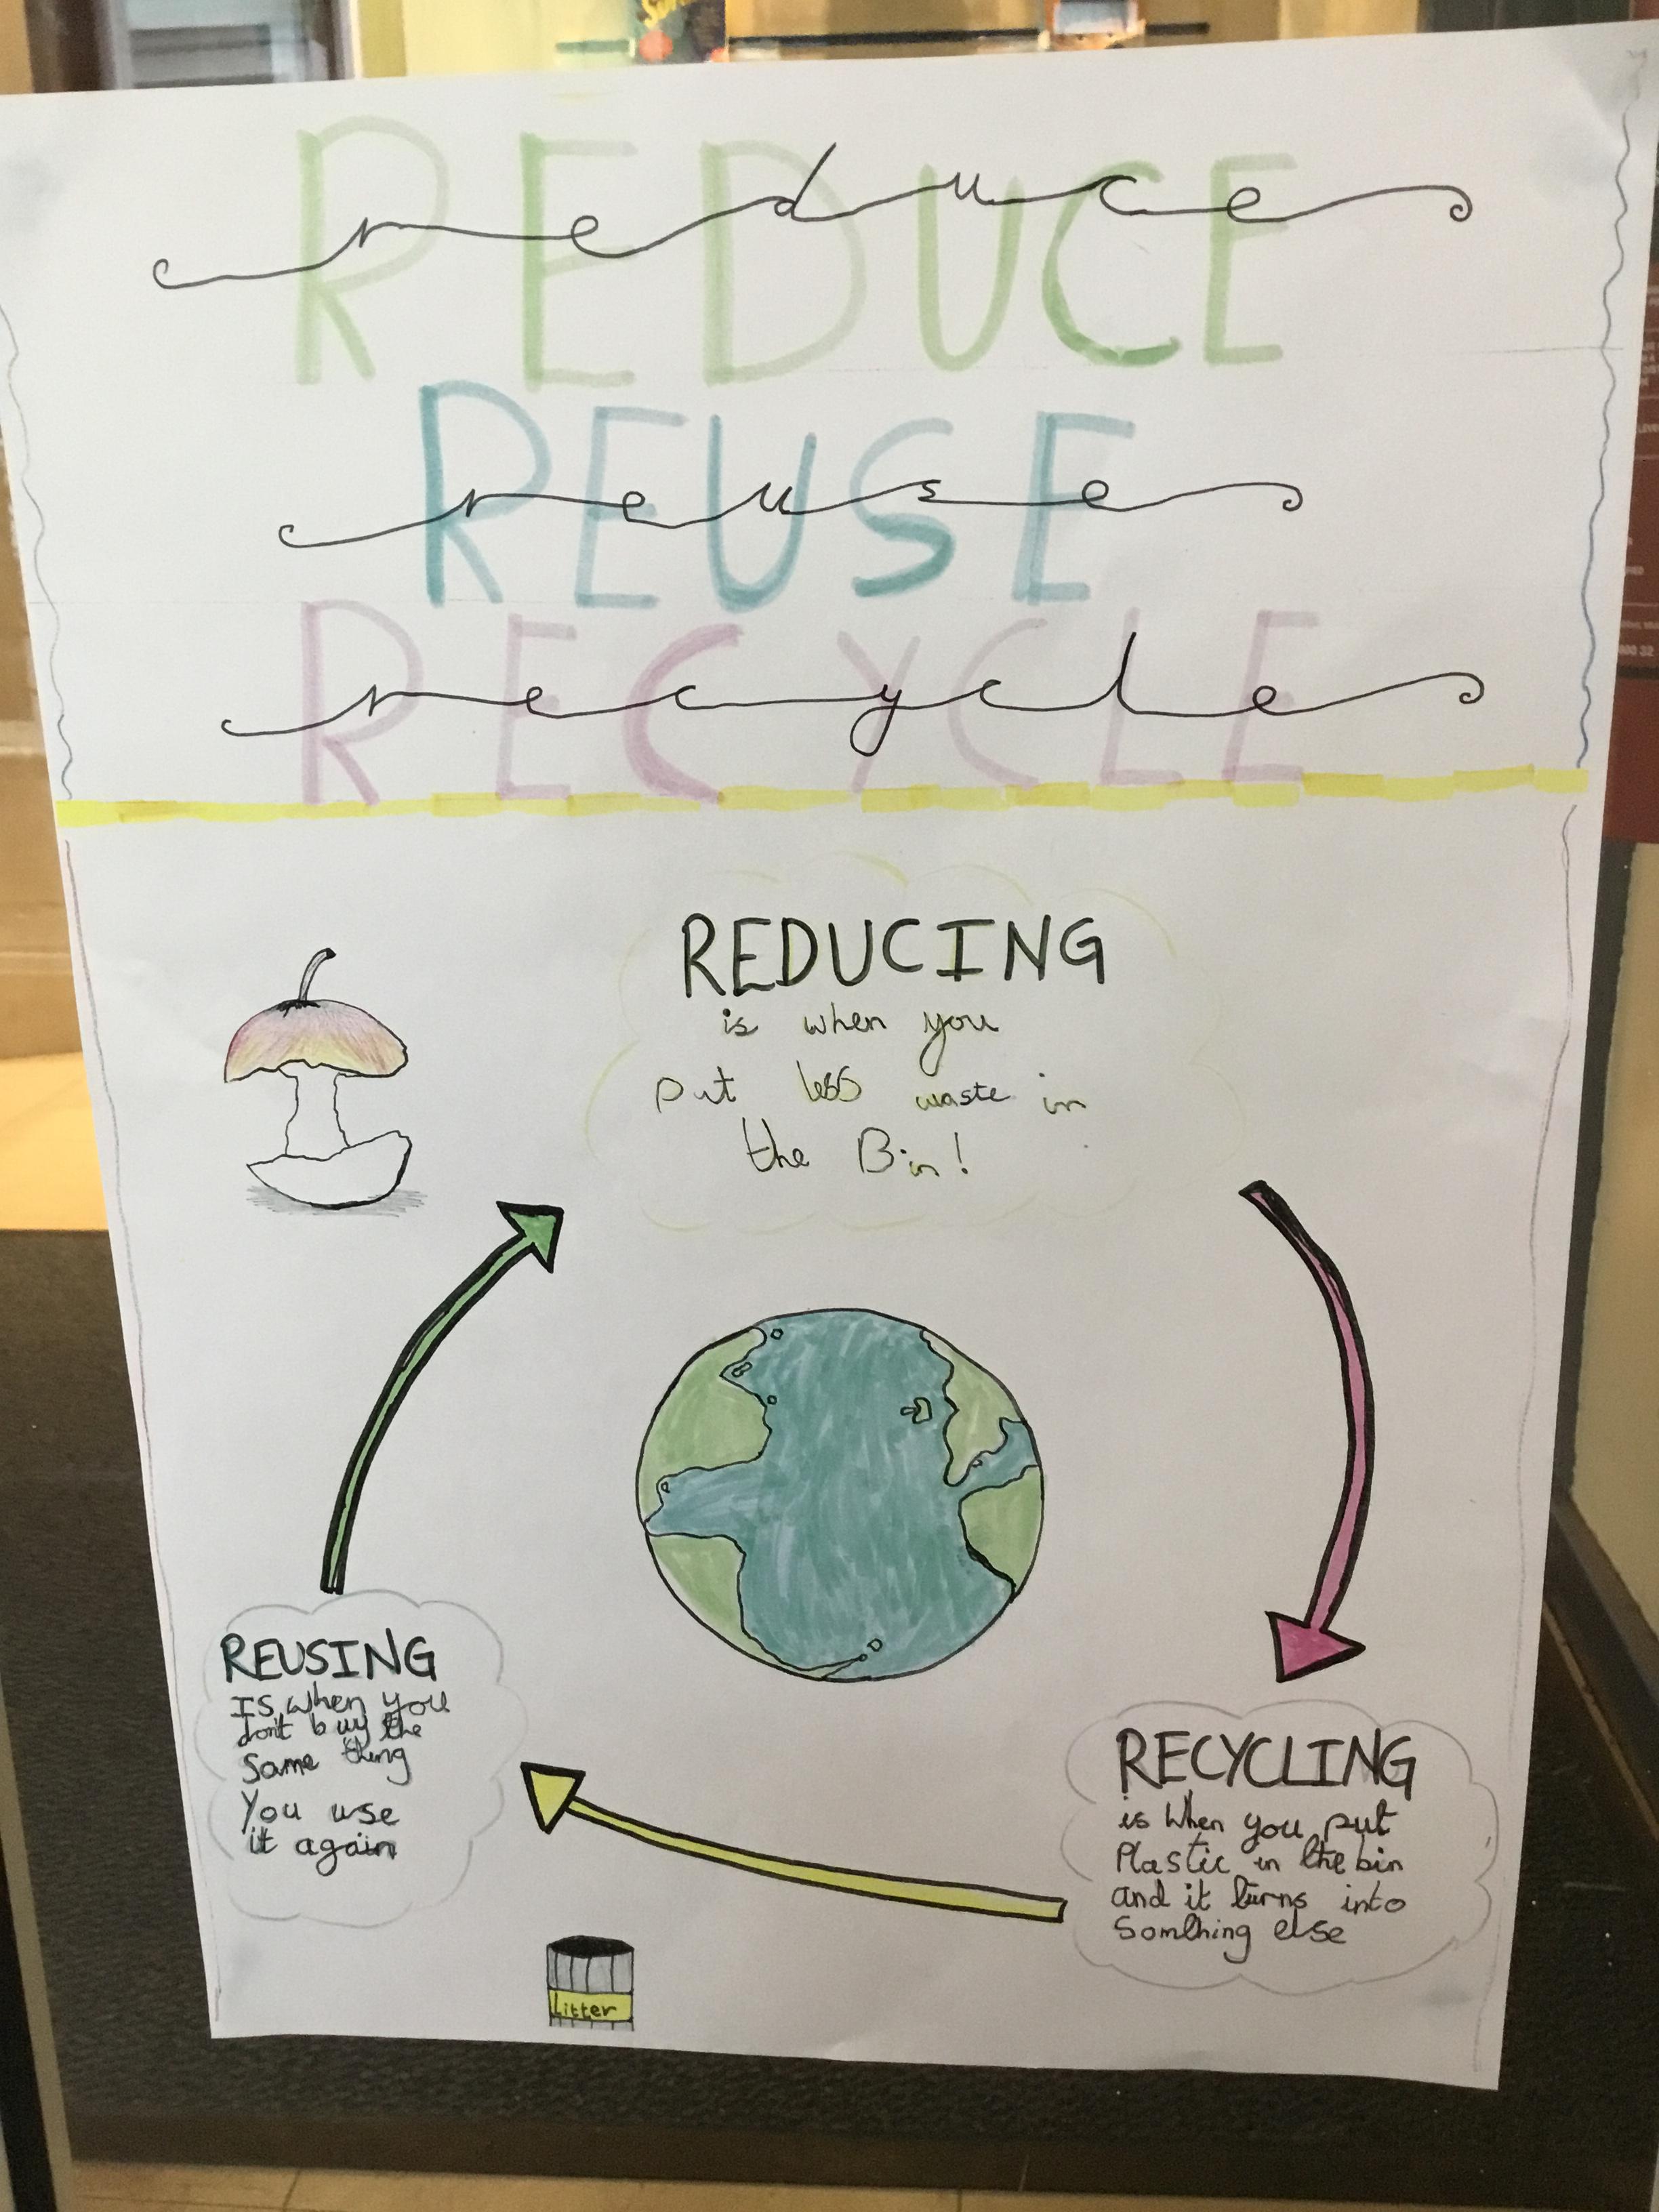 REDUCE
reduce
REUSE
reuse
RECYCLE
recycle
REDUCING
is when you
put less waste in
the Bin!
REUSING
IS when you
don't buy the
same thing
You use
it again
RECYCLING
is when you put
Plastic in the bin
and it turns into
Somthing else
Litter